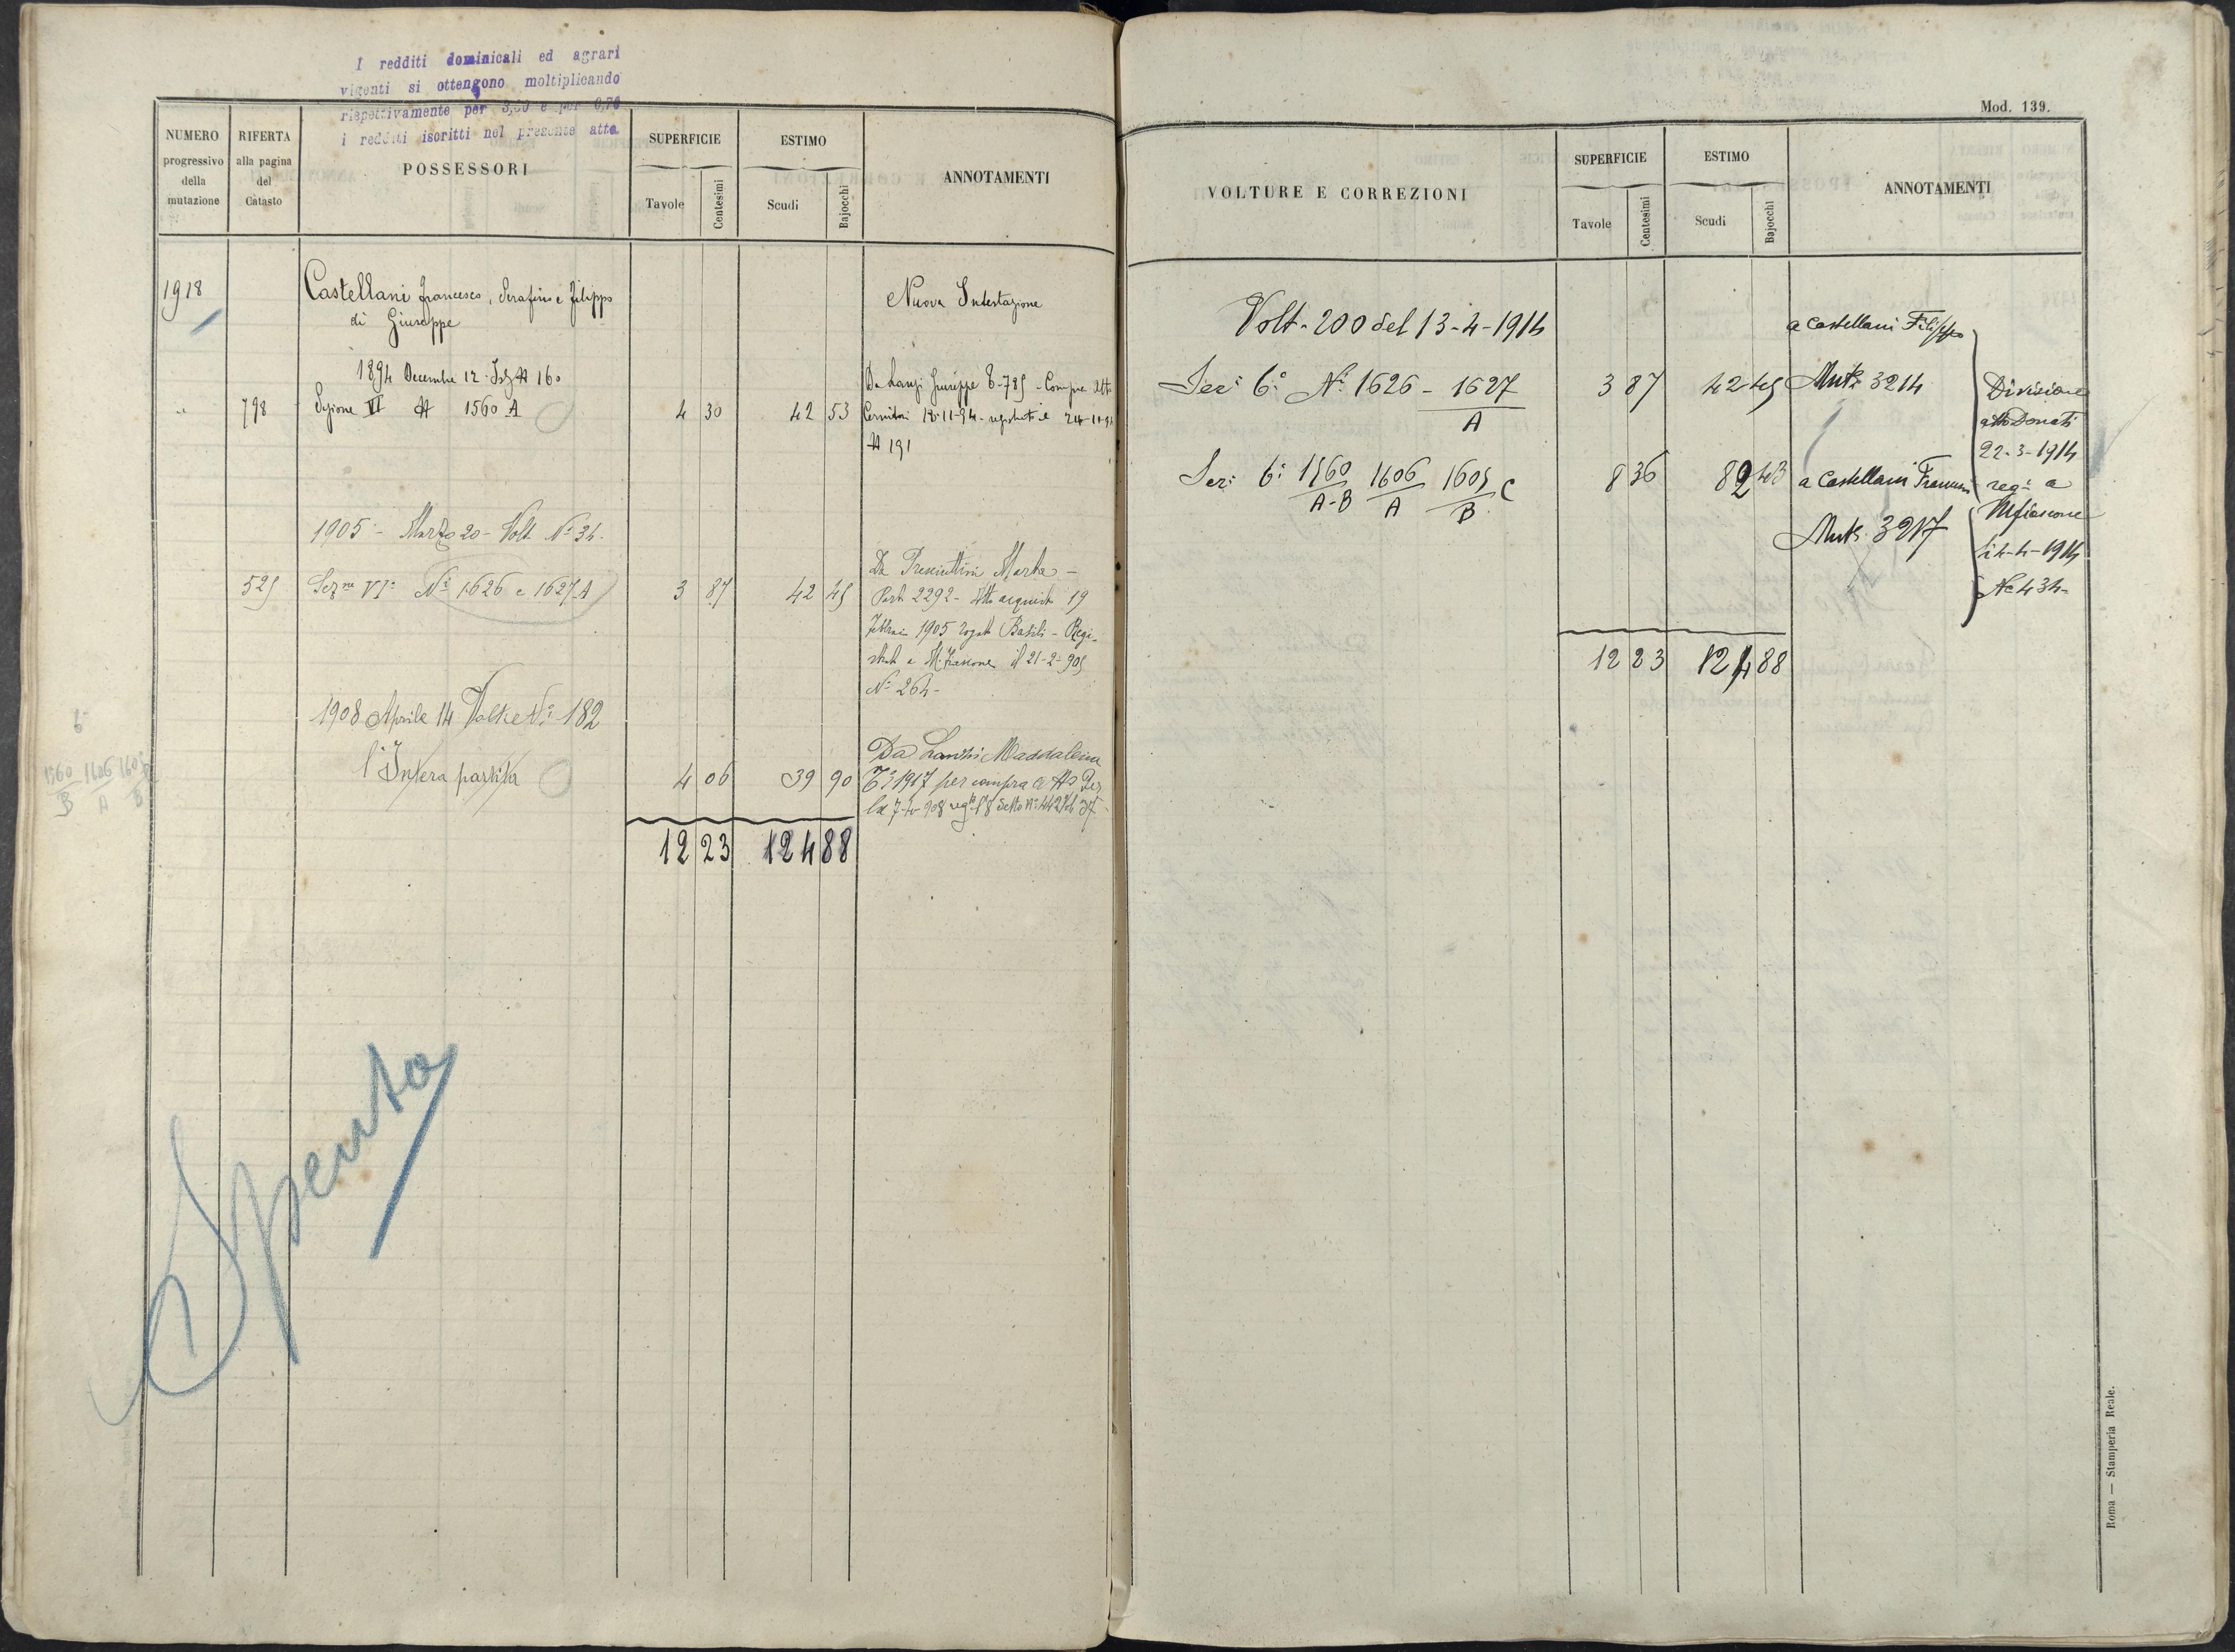 I redditi dominicali ed agrari
vigenti si ottengono moltiplicando
rispettivamente per 3,30 e per 0,70
i redditi iscritti nel presente atto
NUMERO
progressivo
della
mutazione
RIFERTA
alla pagina
del
Catasto
POSSESSORI
SUPERFICIE
Tavole
Centesimi
ESTIMO
Scudi
Bajocchi
ANNOTAMENTI
1918
Castellani Francesco, Serafino e Filippo
di Giuseppe
Nuova Intestazione
1894 Decembre 12 N 160
798 Sezione VI N 1560 A 4 30 42 53
Da Lanzi Giuseppe 785 - Compra Atto
18-11-94 - registrato il 24-11-94
N 191
1905 - Marzo 20 - Volt. N° 34-
525 Sez.ne VI° N° 1626 e 1627 A 3 87 42 45
Da Presciuttini Marta -
Part. 2292 - Atto acquisto 19
Febbraio 1905 rogato Basili - Regi-
strato a M.Fiascone il 21-2-905
N° 264-
1908 Aprile 14 Volt.e N° 182
l'Intera partita 4 06 39 90
Da Lanzi Maddalena
1917 per compra Atto
7-4-908 reg.to l'8 detto N° 442 Vol 37
6
1560/B 1606/A 1605/B
12 23 124 88
Spenta
Mod. 139.
VOLTURE E CORREZIONI
SUPERFICIE
Tavole
Centesimi
ESTIMO
Scudi
Bajocchi
ANNOTAMENTI
Volt. 200 del 13-4-1914
a Castellani Filippo
Sec: 6° N° 1626 - 1627/A 3 87 42 45 Mut. 3214
Sez: 6° 1560/A-B 1606/A 1605/B C 8 36 82 43 a Castellani Francesco
Mut. 3217
Divisione
atto Donati
22-3-1914
reg° a
Mfiascone
li 4-4-1914
No 434-
12 23 124 88
Roma — Stamperia Reale.